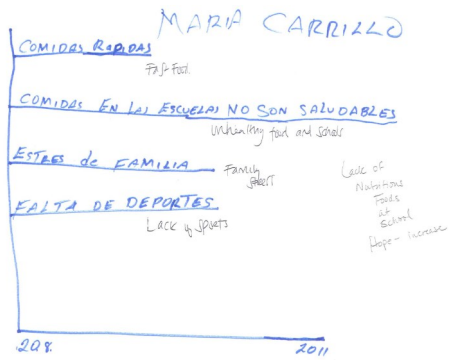 MARIA CARRILLO
COMIDAS RAPIDAS
Fast Food.
COMIDAS EN LAS ESCUELAS NO SON SALUDABLES
Unhealthy food and schools
ESTRES de FAMILIA
Family
FALTA DE DEPORTES
Lack of Sports
Lack of
Nutritions
Foods
at
School
Hope - increase
208.
2011